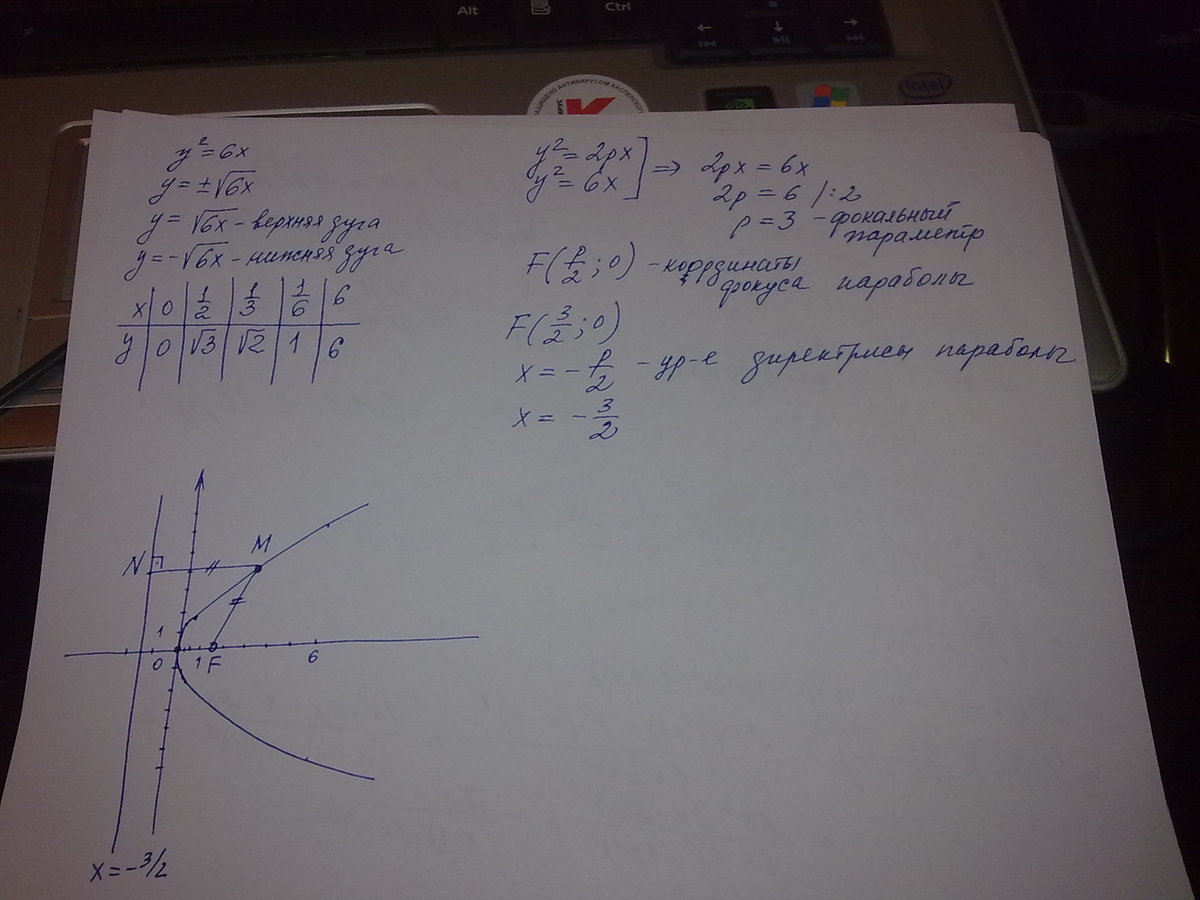 Alt
Ctrl
ЗАЩИЩЕНО АНТИВИРУСОМ КАСПЕРСКОГО
intel
y² = 6x
y = ±√6x
y = √6x - верхняя дуга
y = -√6x - нижняя дуга
x | 0 | 1/2 | 1/3 | 1/6 | 6
y | 0 | √3 | √2 | 1 | 6
y² = 2px
y² = 6x ] ⇒ 2px = 6x
2p = 6 /:2
p = 3 - фокальный
параметр
F(p/2; 0) - координаты
фокуса параболы
F(3/2; 0)
x = -p/2 - ур-е директрисы параболы
x = -3/2
N
M
1
0
1
F
6
x = -3/2